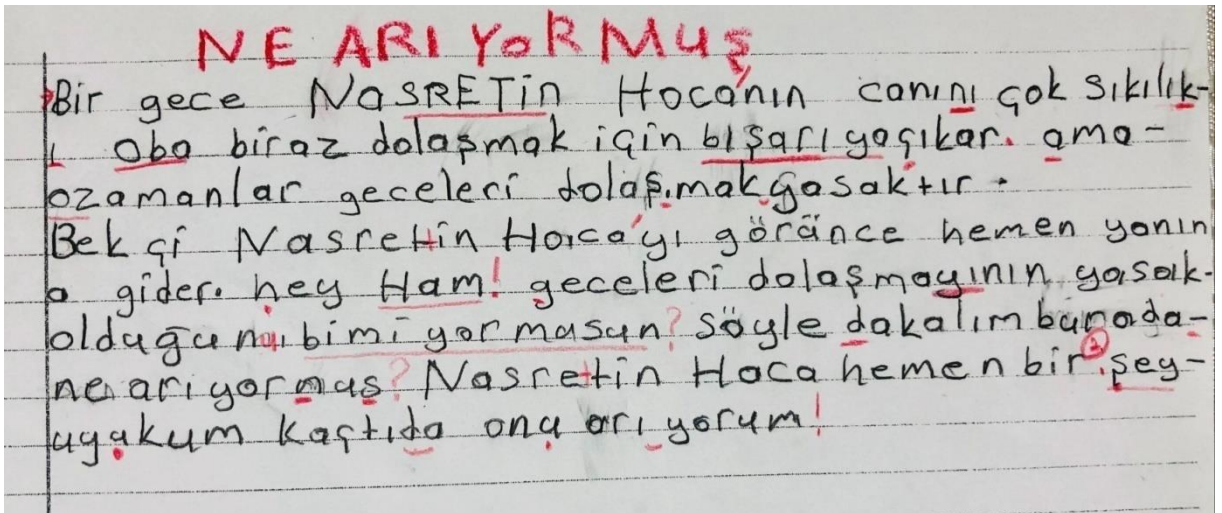 NE ARIYORMUŞ
Bir gece NaSRETin Hoca'nın canını çok sıkılık-
ı oba biraz dolaşmak için bışarı yaçıkar. ama-
ozamanlar geceleri dolaş.makyasaktır.
Bekçi Nasrettin Horca'yı göränce hemen yanın
a gider. hey Ham! geceleri dolaşmayının yasak-
olduğunuı bimiyormusun? Söyle dakalım burada-
ne arıyormus? Nasrettin Hoca hemen bir şey-
uyukum kaçtıda onu arı yorum!